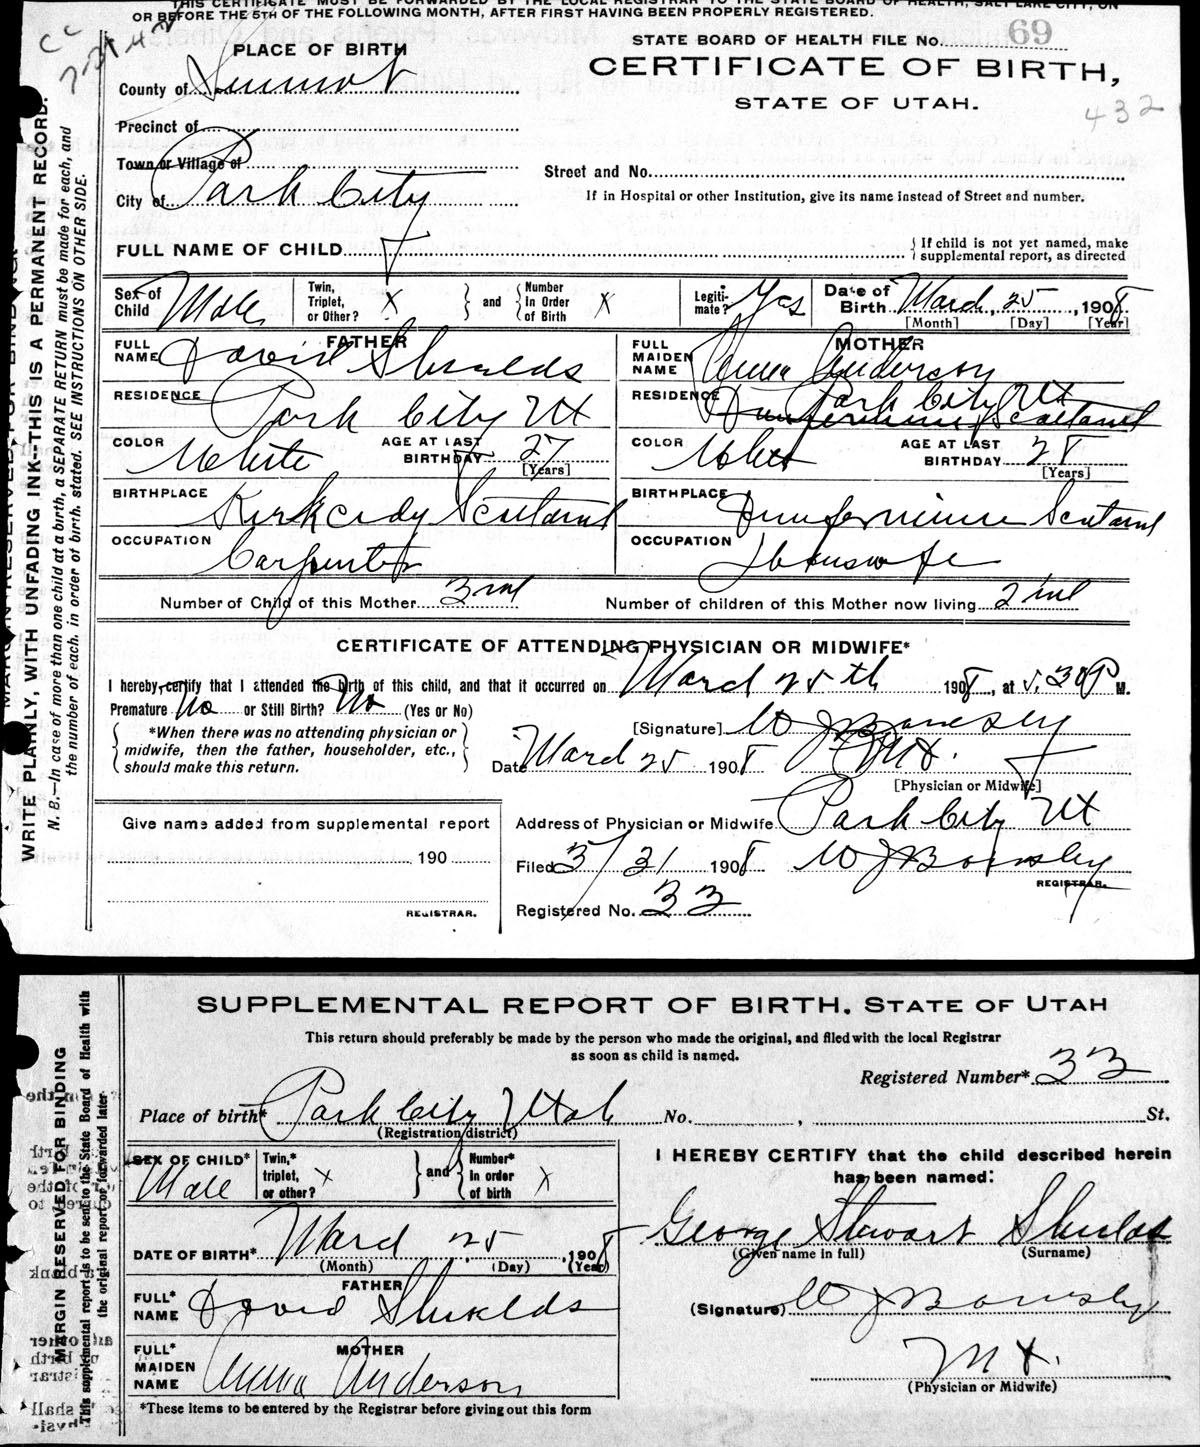 THIS CERTIFICATE MUST BE FORWARDED BY THE LOCAL REGISTRAR TO THE STATE BOARD OF HEALTH, SALT LAKE CITY, ON
OR BEFORE THE 5TH OF THE FOLLOWING MONTH, AFTER FIRST HAVING BEEN PROPERLY REGISTERED.
CC
PLACE OF BIRTH
STATE BOARD OF HEALTH FILE No. 69
CERTIFICATE OF BIRTH,
STATE OF UTAH.
432
County of Summit
Precinct of
Town or Village of
Street and No.
City of Park City
If in Hospital or other Institution, give its name instead of Street and number.
FULL NAME OF CHILD
If child is not yet named, make supplemental report, as directed
Sex of Child Male
Twin, Triplet, or Other? X
and
Number in Order of Birth X
Legitimate? Yes
Date of Birth March 25, 1908
[Month] [Day] [Year]
FATHER
FULL NAME David Shields
MOTHER
FULL MAIDEN NAME Anna Anderson
RESIDENCE Park City Ut
RESIDENCE Park City Ut
Dunfermline Scotland
COLOR White
AGE AT LAST BIRTHDAY 27
[Years]
COLOR White
AGE AT LAST BIRTHDAY 28
[Years]
BIRTHPLACE Kirkcady Scotland
BIRTHPLACE Dunferminne Scotland
OCCUPATION Carpenter
OCCUPATION Housewife
Number of Child of this Mother 3rd
Number of children of this Mother now living 2
CERTIFICATE OF ATTENDING PHYSICIAN OR MIDWIFE*
I hereby certify that I attended the birth of this child, and that it occurred on March 25th 1908, at 5.30 P M.
Premature No or Still Birth? No (Yes or No)
*When there was no attending physician or midwife, then the father, householder, etc., should make this return.
[Signature] W J Bardsley
Date March 25 1908 MD.
[Physician or Midwife]
Give name added from supplemental report
190
REGISTRAR.
Address of Physician or Midwife Park City Ut
Filed 3/31 1908 W J Bardsley
REGISTRAR.
Registered No. 33
MARGIN RESERVED FOR BINDING.
WRITE PLAINLY, WITH UNFADING INK—THIS IS A PERMANENT RECORD.
N. B.—In case of more than one child at a birth, a SEPARATE RETURN must be made for each, and
the number of each, in order of birth, stated. SEE INSTRUCTIONS ON OTHER SIDE.
SUPPLEMENTAL REPORT OF BIRTH. STATE OF UTAH
This return should preferably be made by the person who made the original, and filed with the local Registrar
as soon as child is named.
Registered Number* 33
Place of birth* Park City Utah No. , St.
(Registration district)
SEX OF CHILD* Male
Twin,* triplet, or other? X
and
Number* in order of birth X
I HEREBY CERTIFY that the child described herein
has been named:
DATE OF BIRTH* March 25, 1908
(Month) (Day) (Year)
George Stewart Shields
(Given name in full) (Surname)
FATHER
FULL* NAME David Shields
(Signature) W J Bardsley
MOTHER
FULL* MAIDEN NAME Anna Anderson
MD.
(Physician or Midwife)
*These items to be entered by the Registrar before giving out this form
MARGIN RESERVED FOR BINDING
This supplemental report is to be sent to the State Board of Health with
the original report or forwarded later